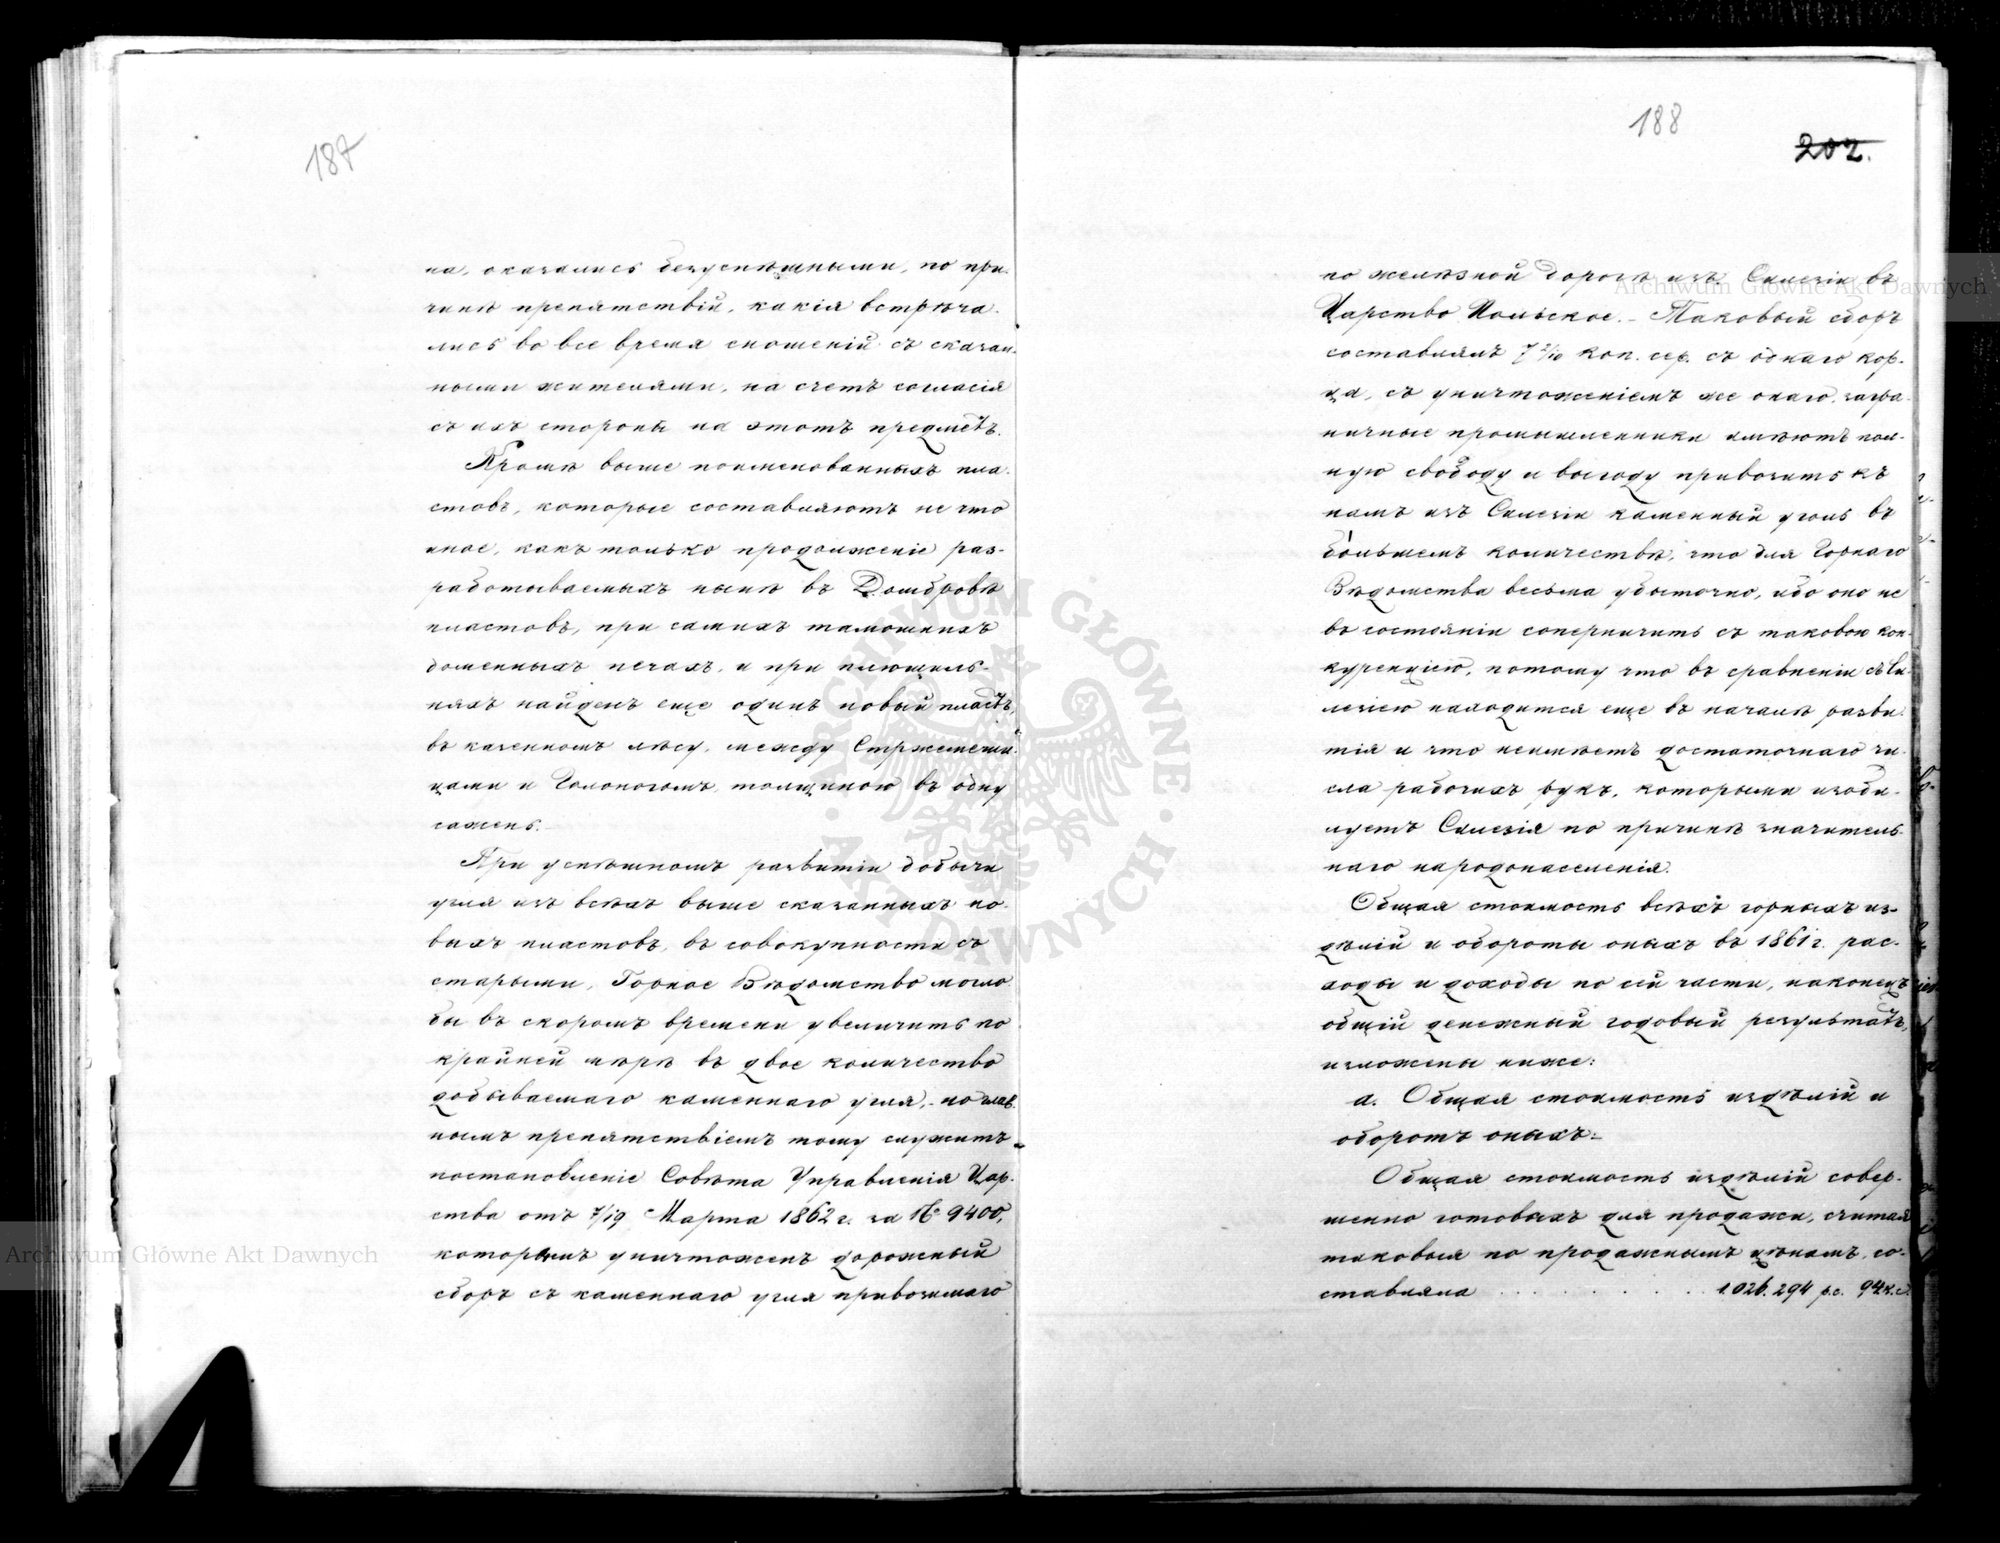 187
на, оказались безуспѣшными, по при-
чинѣ препятствій, какія встрѣча-
лись во все время сношеній съ сказан-
ными жителями, на счетъ согласія
съ ихъ стороны на этотъ предметъ.
Кромѣ выше поименованныхъ пла-
стовъ, которые составляютъ не что
иное, какъ только продолженіе раз-
работываемыхъ нынѣ въ Домбровѣ
пластовъ, при самихъ тамошнихъ
доменныхъ печахъ, и при плющиль-
няхъ найденъ еще одинъ новый пластъ,
въ казенномъ лѣсу, между Стржемешиц-
цами и Голоногомъ, толщиною въ одну
сажень.
При успѣшномъ развитіи добычи
угля изъ всѣхъ выше сказанныхъ но-
выхъ пластовъ, въ совокупности съ
старыми, Горное Вѣдомство могло
бы въ скоромъ времени увеличить по
крайней мѣрѣ въ двое количество
добываемаго каменнаго угля, - но глав-
нымъ препятствіемъ тому служитъ
постановленіе Совѣта Управленія Цар-
ства отъ 7/19 Марта 1862 г. за № 9400,
которымъ уничтоженъ дорожный
сборъ съ каменнаго угля привозимаго
188
202.
по желѣзной дорогѣ изъ Силезіи въ
Царство Польское. - Таковый сборъ
составлялъ 7 2/10 коп. сер. съ однаго кор-
ца, съ уничтоженіемъ же онаго, загра-
ничные промышленники имѣютъ пол-
ную свободу и выгоду привозить къ
намъ изъ Силезіи каменный уголь въ
бо́льшемъ количествѣ, что для Горнаго
Вѣдомства весьма убыточно, ибо оно не
въ состояніи соперничить съ таковою кон-
куренціею, потому что въ сравненіи съ Си-
лезіею находится еще въ началѣ разви-
тія и что неимѣетъ достаточнаго чи-
сла рабочихъ рукъ, которыми изоби-
луетъ Силезія по причинѣ значитель-
наго народонаселенія.
Общая стоимость всѣхъ горныхъ из-
дѣлій и обороты оныхъ въ 1861 г. рас-
ходы и доходы по сей части, наконецъ
общій денежный годовый результатъ,
изложены ниже:
а. Общая стоимость издѣлій и
оборотъ оныхъ:
Общая стоимость издѣлій совер-
шенно готовыхъ для продажи, считая
таковыя по продажнымъ цѣнамъ, со-
ставляла . . . . . . . . 1.026.294 р.с. 94 к.с.
Archiwum Główne Akt Dawnych
Archiwum Główne Akt Dawnych
ARCHIWUM GŁÓWNE · AKT DAWNYCH ·